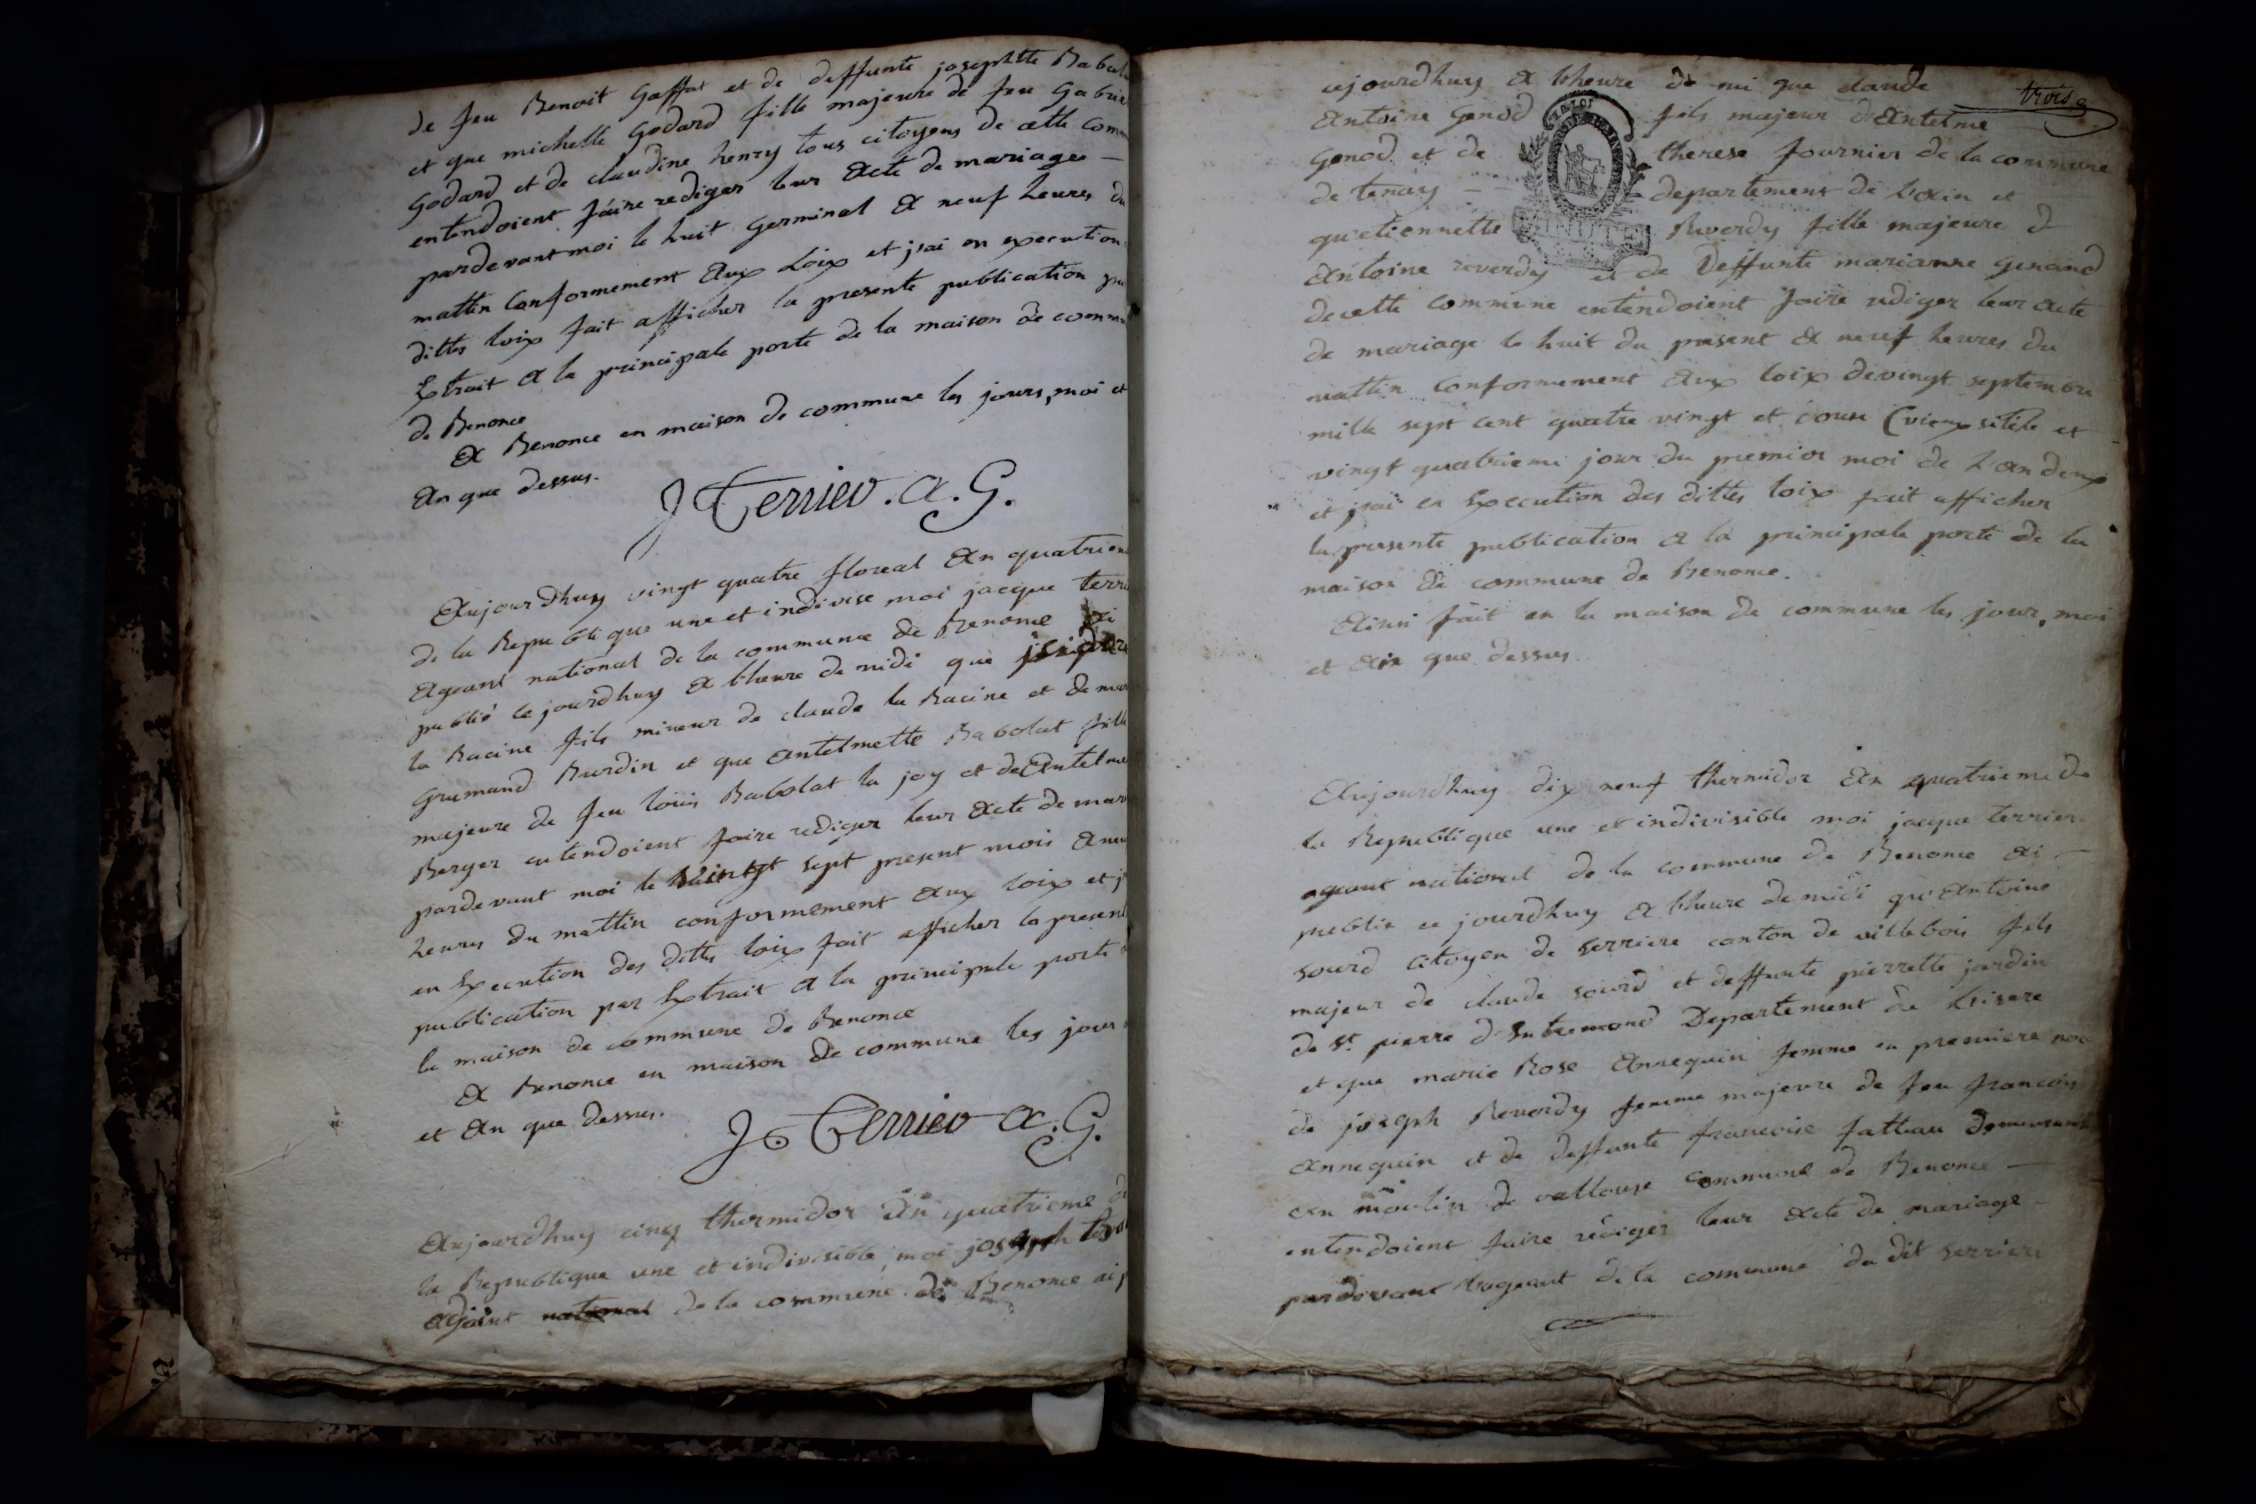 de feu Benoit Gaffat et de deffunte josephtte Babol
et que michelle Godard fille majeure de feu Gabrie
Godard et de claudine henry tous citoyens de cette comm
entendoient faire rediger leur Acte de mariage
pardevant moi le huit Germinal A neuf heures du
mattin Conformement Aux Loix et j'ai en execution
dittes loix fait afficher la presente publication pa
Extrait A la principale porte de la maison de commu
de Benonce
A Benonce en maison de commune les jours, moi et
An que dessus.
J Terrier. A. G.
Aujourdhuy vingt quatre floreal An quatriem
de la Republique une et indivise moi jacque terri
Ageant national de la commune de Benonce Ai
publié ce jourdhuy A l'heure de midi que isidore
la Racine fils mineur de claude la Racine et de mar
Grumand Burdin et que Antelmette Babolat fille
majeure de feu loüis Babolat la joy et de Antelme
Berger entendoient faire rediger leur Acte de mar
pardevant moi le vingt sept present mois A neu
heures du mattin conformement Aux loix et j
en Execution des dittes loix fait afficher la present
publication par Extrait A la principale porte d
la maison de commune de Benonce
A Benonce en maison de commune les jour
et An que dessus.
J Terrier A. G.
Aujourdhuy cinq thermidor An quatrieme d
la Republique une et indivisible, moi joseph
Adjoint national de la commune de Benonce ai p
trois
cejourdhuy A l'heure de mi que claude
Antoine Genod fils majeur d'Antelme
Genod et de therese fournier de la commune
de tenay departement de L'ain et
qu'etiennette Reverdy fille majeure d
Antoine reverdy et de Deffunte marianne Genand
de cette commune entendoient faire rediger leur Acte
de mariage le huit du present A neuf heures du
mattin Conformement Aux loix de vingt septembre
mille sept cent quatre vingt et douse (vieux sitile et
vingt quatrieme jour du premier moi de L'an deux
et j'ai en Execution des dittes loix fait afficher
la presente publication A la principale porte de la
maison de commune de Benonce.
Ainsi fait en la maison de commune les jour, moi
et An que dessus.
Aujourdhuy dix neuf thermidor An quatrieme de
la Republique une et indivisible moi jacque terrier
ageant national de la commune de Benonce Ai
publié ce jourdhuy A l'heure de midi qu'Antoine
sourd citoyen de serriere canton de villebois fils
majeur de claude sourd et deffunte pierrette jardin
de St. pierre d'Entremond Departement de L'isere
et que marie Rose Annequin femme en premiere noc
de joseph Reverdy femme majeure de feu francois
Annequin et de deffunte francoise fattau Demeurant
au moulin de vallouse commune de Benonce
entendoient faire rediger leur Acte de mariage
pardevant l'ageant de la commune du dit serriere